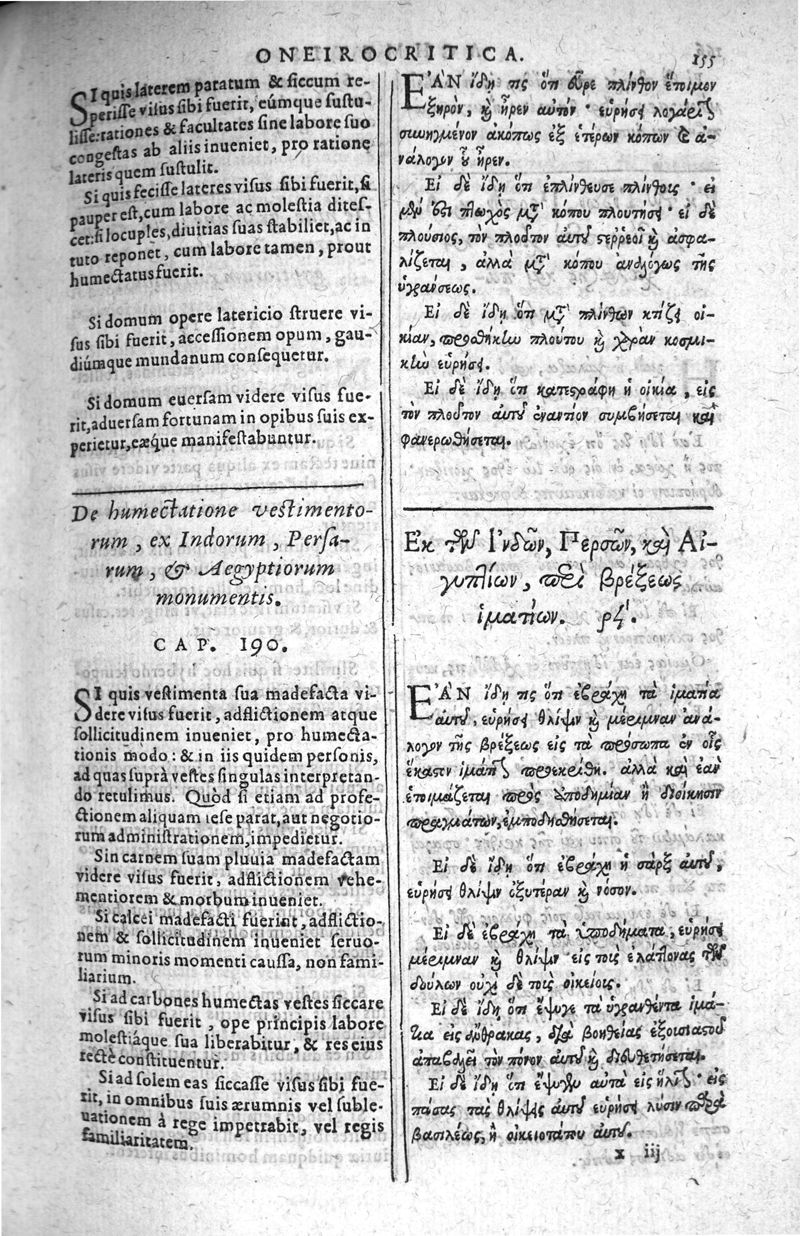 ONEIROCRITICA.
155
SI quis laterem paratum & siccum re-
perisse visus sibi fuerit, eúmque sustu-
lisse: rationes & facultates sine labore suo
congestas ab aliis inueniet, pro ratione
lateris quem sustulit.
Si quis fecisse lateres visus sibi fuerit, si
pauper est, cum labore ac molestia dites-
cet: si locuples, diuitias suas stabiliet, ac in
tuto reponet, cum labore tamen, prout
humectatus fuerit.
Si domum opere latericio struere vi-
sus sibi fuerit, accessionem opum, gau-
diúmque mundanum consequetur.
Si domum euersam videre visus fue-
rit, aduersam fortunam in opibus suis ex-
perietur, eæque manifestabuntur.
De humectatione vestimento-
rum, ex Indorum, Persa-
rum, & Aegyptiorum
monumentis.
CAP. 190.
SI quis vestimenta sua madefacta vi-
dere visus fuerit, adflictionem atque
sollicitudinem inueniet, pro humecta-
tionis modo: & in iis quidem personis,
ad quas suprà vestes singulas interpretan-
do retulimus. Quòd si etiam ad profe-
ctionem aliquam sese parat, aut negotio-
rum administrationem, impedietur.
Sin carnem suam pluuia madefactam
videre visus fuerit, adflictionem vehe-
mentiorem & morbum inueniet.
Si calcei madefacti fuerint, adflictio-
nem & sollicitudinem inueniet seruo-
rum minoris momenti caussa, non fami-
liarium.
Si ad carbones humectas vestes siccare
visus sibi fuerit, ope principis labore
molestiáque sua liberabitur, & res eius
rectè constituentur.
Si ad solem eas siccasse visus sibi fue-
rit, in omnibus suis ærumnis vel suble-
uationem à rege impetrabit, vel regis
familiaritatem.
ΕΑΝ ἴδῃ τις ὅτι εὗρε πλίνθον ἕτοιμον
ξηρὸν, καὶ ἦρεν αὐτὸν· εὑρήσει λογάριον
συνηγμένον ἀκόπως ἐξ ἑτέρων κόπων ἀ-
νάλογον οὗ ἦρεν.
Εἰ δὲ ἴδῃ ὅτι ἐπλίνθευσε πλίνθοις· εἰ
μὲν ἔστι πτωχὸς μετὰ κόπου πλουτήσει· εἰ δὲ
πλούσιος, τὸν πλοῦτον αὐτοῦ στερρεοῖ καὶ ἀσφα-
λίζεται, ἀλλὰ μετὰ κόπου ἀναλόγως τῆς
ὑγράνσεως.
Εἰ δὲ ἴδῃ ὅτι μετὰ πλίνθων κτίζει οἰ-
κίαν, προσθήκην πλούτου καὶ χαρὰν κοσμι-
κὴν εὑρήσει.
Εἰ δὲ ἴδῃ ὅτι κατεστράφη ἡ οἰκία, εἰς
τὸν πλοῦτον αὐτοῦ ἐναντίον συμβήσεται καὶ
φανερωθήσεται.
Ἐκ τῶν Ἰνδῶν, Περσῶν, καὶ Αἰ-
γυπτίων, περὶ βρέξεως
ἱματίων. ρϟʹ.
ΕΑΝ ἴδῃ τις ὅτι ἐβράχη τὰ ἱμάτια
αὐτοῦ, εὑρήσει θλίψιν καὶ μέριμναν ἀνά-
λογον τῆς βρέξεως εἰς τὰ πρόσωπα ἐν οἷς
ἕκαστον ἱμάτιον προεκρίθη. ἀλλὰ καὶ ἐὰν
ἑτοιμάζεται πρὸς ἀποδημίαν ἢ διοίκησιν
πραγμάτων, ἐμποδισθήσεται.
Εἰ δὲ ἴδῃ ὅτι ἐβράχη ἡ σὰρξ αὐτοῦ,
εὑρήσει θλίψιν ὀξυτέραν καὶ νόσον.
Εἰ δὲ ἐβράχη τὰ ὑποδήματα, εὑρήσει
μέριμναν καὶ θλίψιν εἰς τοὺς ἐλάττονας τῶν
δούλων οὐχὶ δὲ τοὺς οἰκείους.
Εἰ δὲ ἴδῃ ὅτι ἔψυγε τὰ ὑγρανθέντα ἱμά-
τια εἰς ἄνθρακας, διὰ βοηθείας ἐξουσιαστοῦ
ἀποβαλεῖ τὸν πόνον αὐτοῦ καὶ διευθετήσεται.
Εἰ δὲ ἴδῃ ὅτι ἔψυξεν αὐτὰ εἰς ἥλιον· εἰς
πάσας τὰς θλίψεις αὐτοῦ εὑρήσει λύσιν παρὰ
βασιλέως, ἢ οἰκειοτάτου αὐτοῦ.
x iij